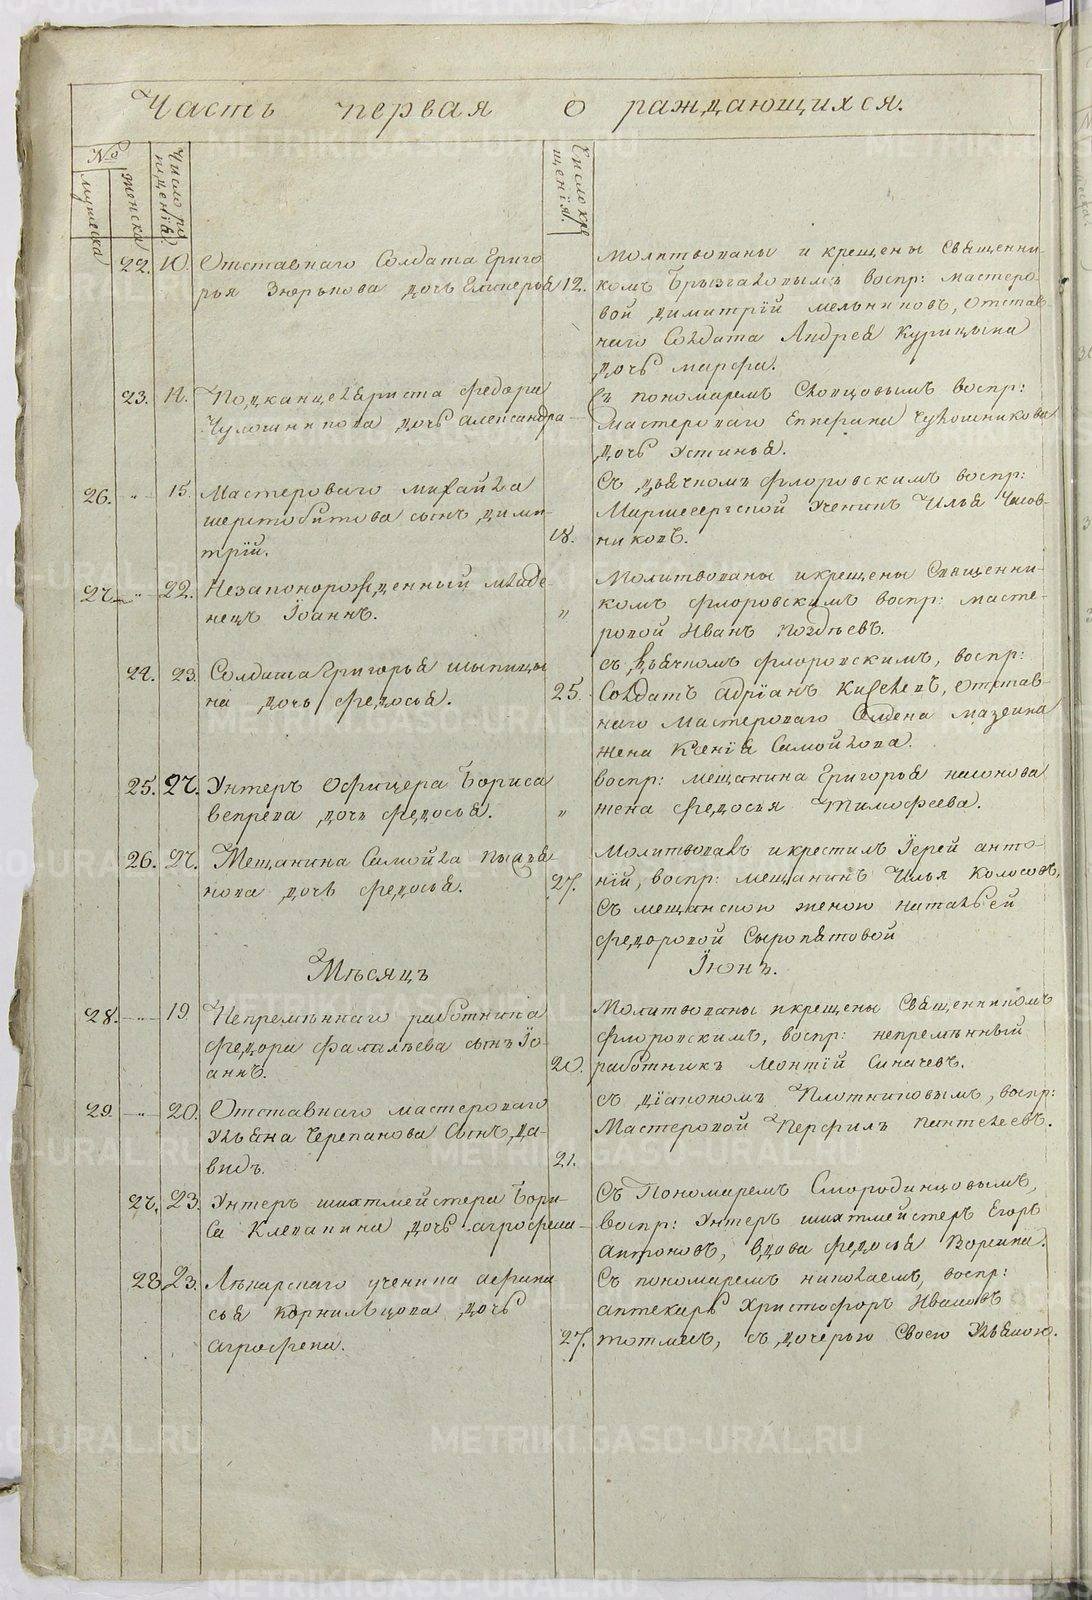 Часть первая о раждающихся.
№
мужеска
женска
Число рождения
Число крещения
22. 10. Отставнаго Солдата Григо
рья Зюрьнова дочь Гликерья 12.
Молитвованы и крещены Священни-
комъ Брызгаловымъ воспр: мастеро
вой димитрій мельниковъ, отстав-
наго Солдата Андрея Курицына
дочь марфа.
23. 11. Подканцеляриста федора
Чулошникова дочь александра
съ пономаремъ Скопцовымъ воспр:
Мастероваго Чулошникова
дочь Устинья.
26. „ 15. Мастероваго михайла
шерстобитова сынъ дими-
трій. 18.
Съ дьячкомъ флоровскимъ воспр:
ученикъ Илья Часов-
никовъ.
27. „ 22. Незаконорожденный младе-
нецъ Іоаннъ. „
Молитвованы и крещены Священни-
комъ флоровскимъ воспр: масте-
ровой Иванъ Поздѣевъ.
24. 23. Солдата Григорья шыпицы
на дочь федосья. 25.
съ дьячкомъ флоровскимъ, воспр:
Солдатъ адріанъ Киселевъ, отстав-
наго мастероваго Семена мазеина
жена Ксенія Самойлова.
25. 27. Унтеръ Офицера Бориса
вепрева дочь федосья. „
воспр: мещанина Григорья насонова
жена федосья Тимофеева.
26. 27. Мещанина Самойла
нова дочь федосья. 27.
Молитвовалъ и крестилъ Іерей анто-
ній, воспр: мещанинъ Илья Колосовъ,
съ мещанскою женою натальей
федоровой Сыропятовой
Мѣсяцъ Іюнь.
28. „ 19 Непремѣннаго работника
федора фалалѣева сынъ Іо-
аннъ. 20.
Молитвованы и крещены Священникомъ
флоровскимъ, воспр: непремѣнный
работникъ леонтій Сигачевъ.
29. „ 20. Отставнаго мастероваго
Ульяна Черепанова Сынъ да-
видъ. 21.
съ діакономъ Плотниковымъ, воспр:
Мастеровой Перфилъ Пантелеевъ.
27. 23. Унтеръ шихтмейстера Бори-
са Клепинина дочь агрофена
Съ Пономаремъ Смородинцовымъ,
воспр: Унтеръ шихтмейстеръ Егоръ
антоновъ, вдова федосья Ворсина.
28. 23. Лѣкарскаго ученика афана
сья Корнильцова дочь
агрофена. 27.
Съ пономаремъ николаемъ, воспр:
аптекарь Христофоръ Ивановъ
тотмес, съ дочерью Своею Ульяною.